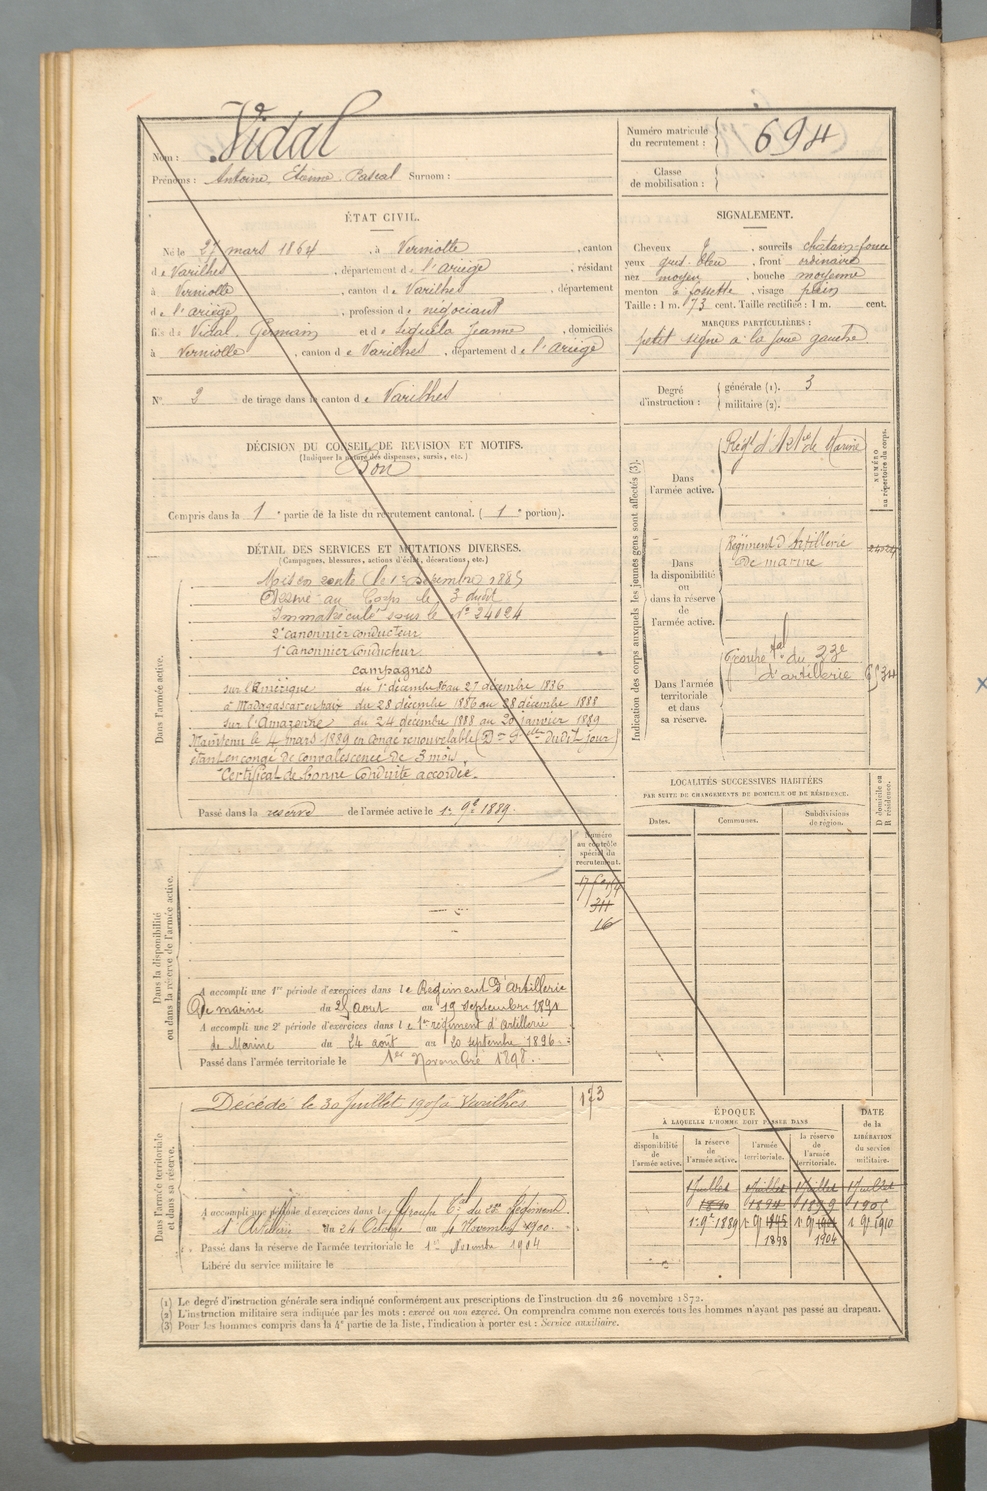 Nom : Vidal
Prénoms : Antoine, Etienne, Pascal Surnom :
Numéro matricule du recrutement : 694
Classe de mobilisation :
ÉTAT CIVIL.
Né le 27 mars 1864, à Verniolle, canton
de Varilhes, département de l'ariège, résidant
à Verniolle, canton de Varilhes, département
de l'ariège, profession de négociant
fils de Vidal Germain et de Séguéla Jeanne, domiciliés
à Verniolle, canton de Varilhes, département de l'ariège
N° 3 de tirage dans le canton de Varilhes
SIGNALEMENT.
Cheveux , sourcils chatain-foncé
yeux gris-bleu, front ordinaire
nez moyen, bouche moyenne
menton à fossette, visage plein
Taille : 1 m. 73 cent. Taille rectifiée : 1 m. cent.
MARQUES PARTICULIÈRES :
petit signe à la joue gauche.
Degré d'instruction : générale (1). 3
militaire (2).
DÉCISION DU CONSEIL DE REVISION ET MOTIFS.
(Indiquer la nature des dispenses, sursis, etc.)
Bon
Compris dans la 1e partie de la liste du recrutement cantonal. ( 1e portion).
DÉTAIL DES SERVICES ET MUTATIONS DIVERSES.
(Campagnes, blessures, actions d'éclat, décorations, etc.)
Dans l'armée active.
Mis en route le 1er Décembre 1885
Arrivé au Corps le 3 dudit
Immatriculé sous le N° 24024
2e canonnier conducteur
1e canonnier conducteur
campagnes
du 1e décembre au 27 décembre 1886
à Madagascar en paix du 28 décembre 1886 au 28 décembre 1888
sur l'Amazone du 24 décembre 1888 au 20 janvier 1889
Maintenu le 4 mars 1889 en congé renouvelable dudit jour
étant en congé de convalescence de 3 mois.
Certificat de bonne Conduite accordée.
Passé dans la reserve de l'armée active le 1er 9bre 1889.
Indication des corps auxquels les jeunes gens sont affectés (3).
NUMÉRO au répertoire du corps.
Dans l'armée active.
Régt d'Artie de Marine
Dans la disponibilité ou dans la réserve de l'armée active.
Régiment d'Artillerie
de marine
24024
Dans l'armée territoriale et dans sa réserve.
Groupe tal du 23e
d'artillerie
LOCALITÉS SUCCESSIVES HABITÉES
PAR SUITE DE CHANGEMENTS DE DOMICILE OU DE RÉSIDENCE.
Dates. Communes. Subdivisions de région. D domicile ou R résidence.
Dans la disponibilité ou dans la réserve de l'armée active.
Numéro au contrôle spécial du recrutement.
344
16
A accompli une 1re période d'exercices dans le Régiment d'Artillerie
de marine du août au 19 septembre 1891
A accompli une 2e période d'exercices dans le 1er régiment d'Artillerie
de Marine du 24 août au 20 septembre 1896.
Passé dans l'armée territoriale le 1er Novembre 1898.
Dans l'armée territoriale et dans sa réserve.
Décédé le 30 Juillet à Varilhes
173
A accompli une période d'exercices dans le Groupe du Régiment
d'Artillerie du 24 Octobre au 4 Novembre 1900.
Passé dans la réserve de l'armée territoriale le 1er Novembre 1904
Libéré du service militaire le
ÉPOQUE
À LAQUELLE L'HOMME DOIT PASSER DANS
DATE de la LIBÉRATION du service militaire.
la disponibilité de l'armée active. la réserve de l'armée active. l'armée territoriale. la réserve de l'armée territoriale.
1 Juillet 1 Juillet 1 Juillet 1 Juillet
1890 1894 1899 1905
1er 9bre 1889 1898 1904 1910
(1) Le degré d'instruction générale sera indiqué conformément aux prescriptions de l'instruction du 26 novembre 1872.
(2) L'instruction militaire sera indiquée par les mots : exercé ou non exercé. On comprendra comme non exercés tous les hommes n'ayant pas passé au drapeau.
(3) Pour les hommes compris dans la 4e partie de la liste, l'indication à porter est : Service auxiliaire.